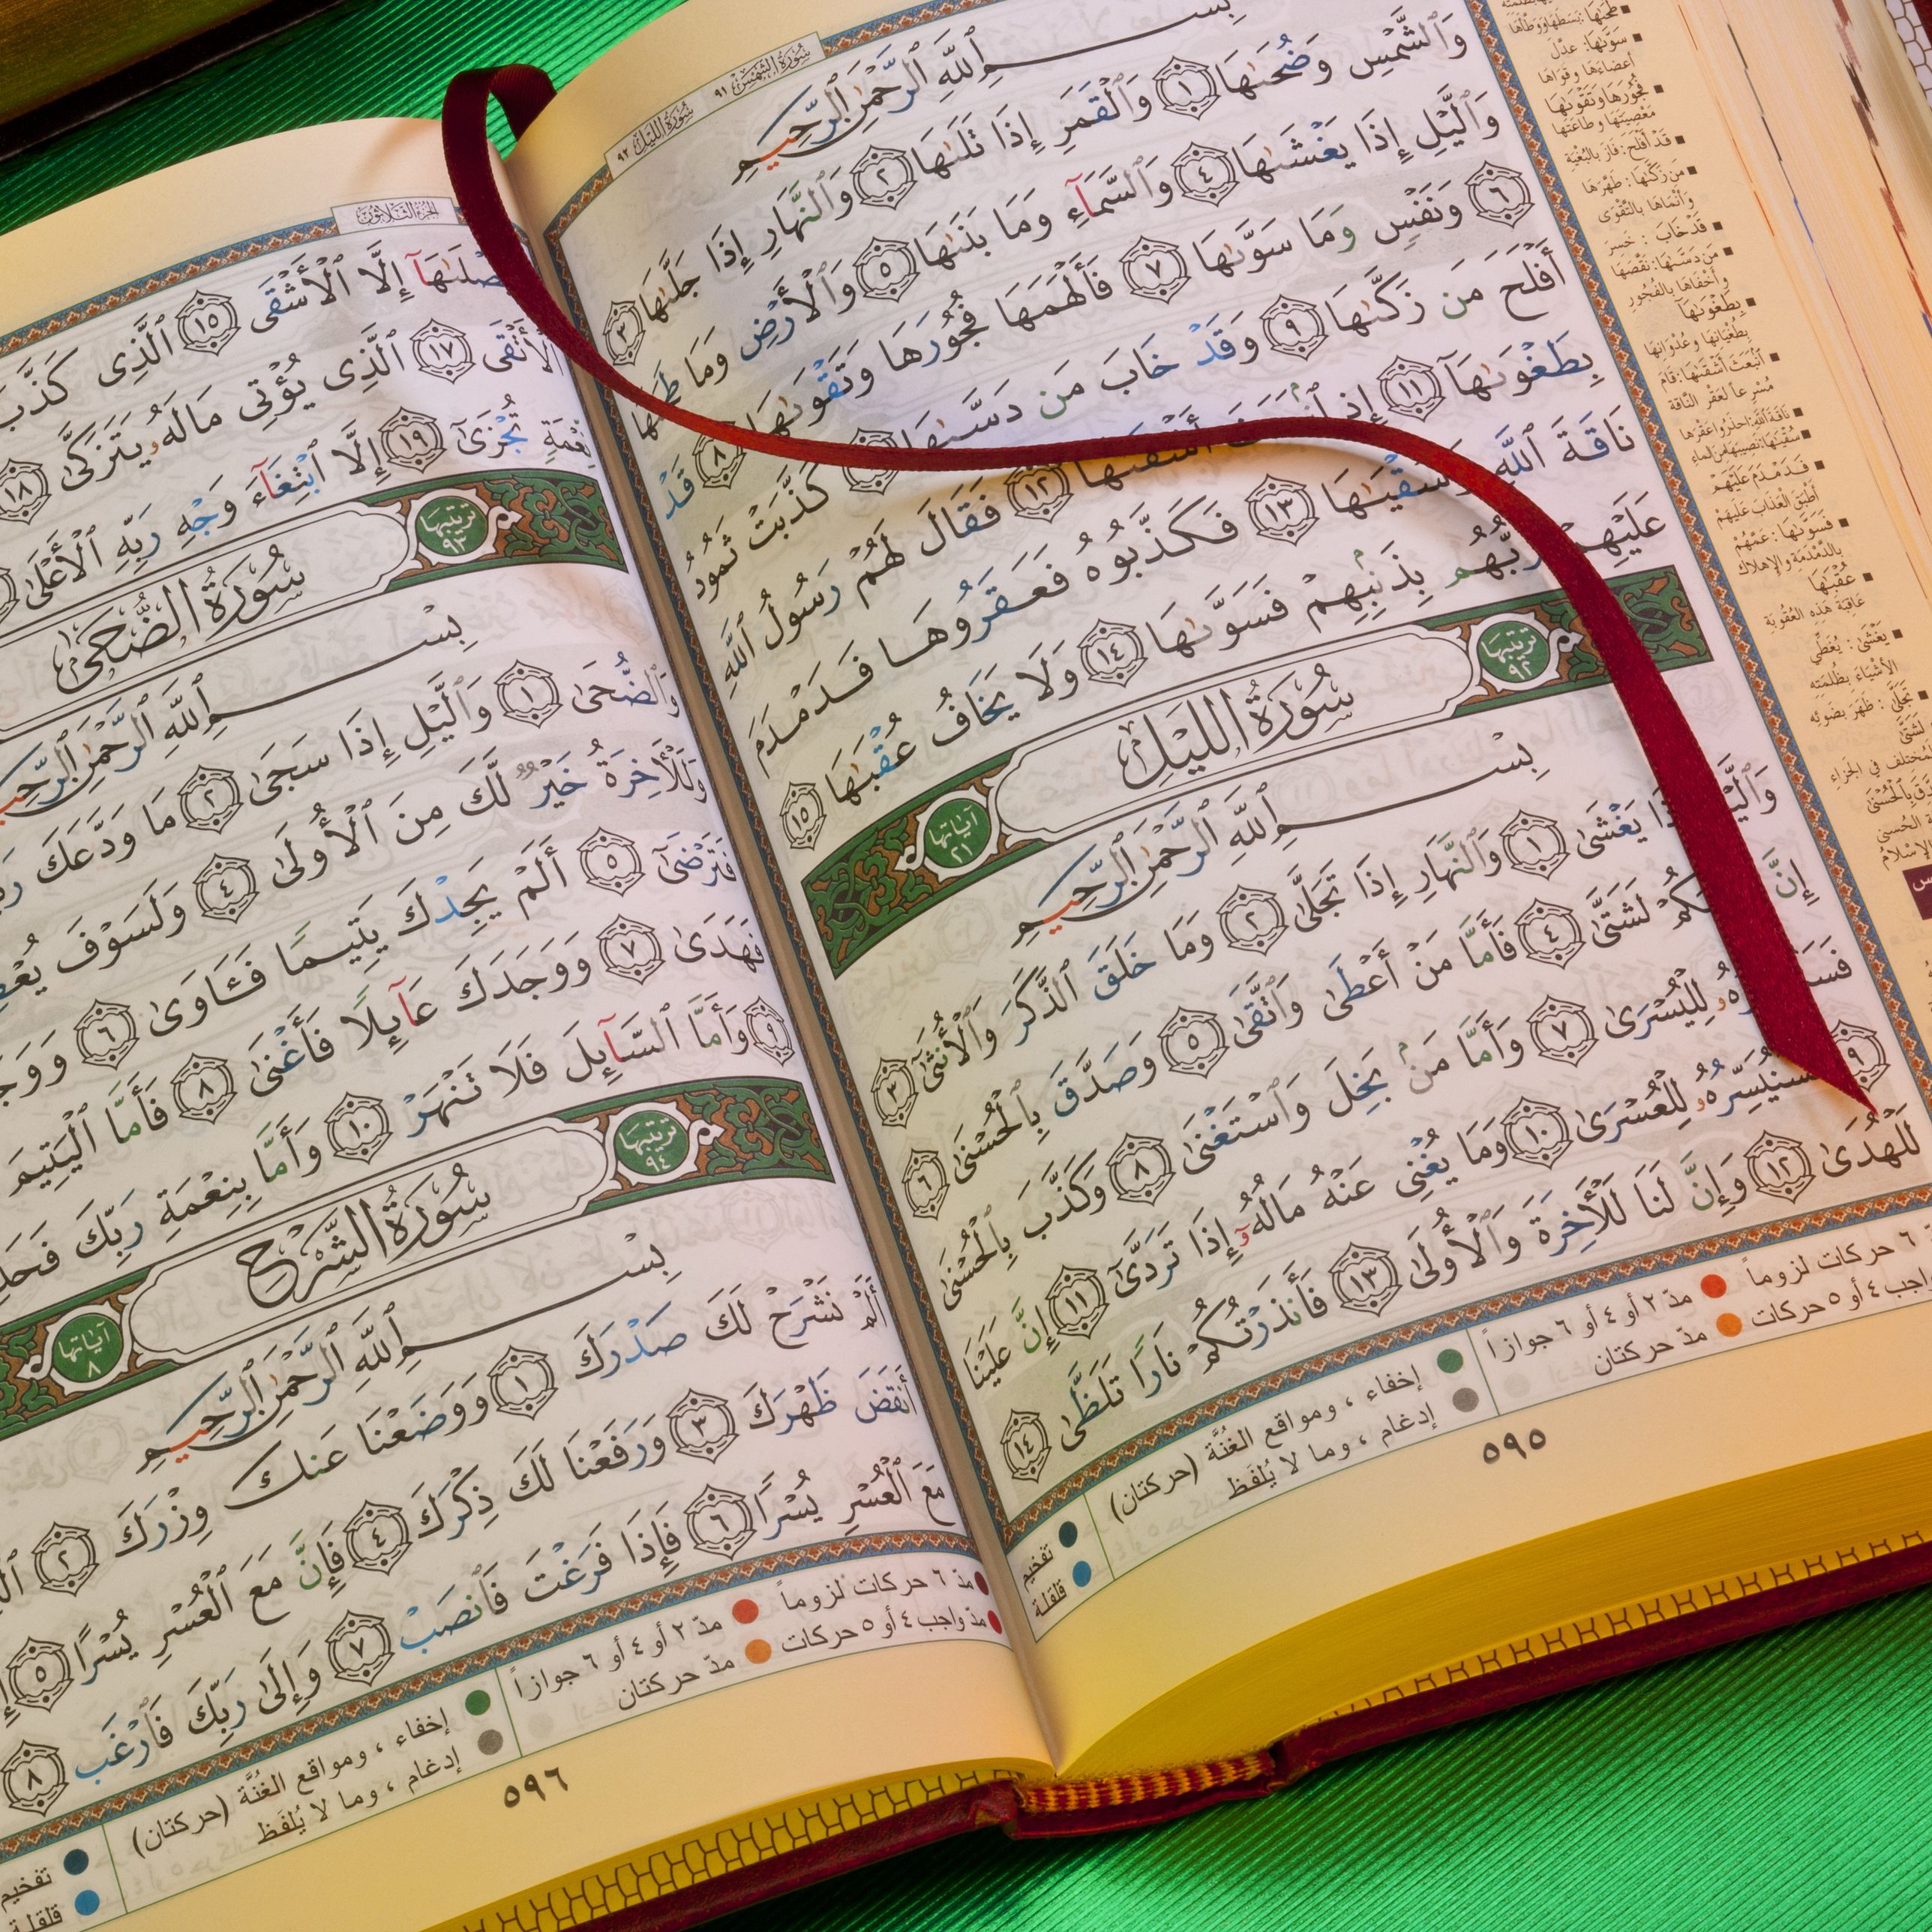 سُورَةُ الشَّمْسِ ٩١
سُورَةُ اللَّيْلِ ٩٢
بِسْمِ ٱللَّهِ ٱلرَّحْمَٰنِ ٱلرَّحِيمِ
وَٱلشَّمْسِ وَضُحَىٰهَا ١ وَٱلْقَمَرِ إِذَا تَلَىٰهَا ٢ وَٱلنَّهَارِ إِذَا جَلَّىٰهَا ٣
وَٱلَّيْلِ إِذَا يَغْشَىٰهَا ٤ وَٱلسَّمَآءِ وَمَا بَنَىٰهَا ٥ وَٱلْأَرْضِ وَمَا طَحَىٰهَا
٦ وَنَفْسٍ وَمَا سَوَّىٰهَا ٧ فَأَلْهَمَهَا فُجُورَهَا وَتَقْوَىٰهَا ٨ قَدْ
أَفْلَحَ مَن زَكَّىٰهَا ٩ وَقَدْ خَابَ مَن دَسَّىٰهَا كَذَّبَتْ ثَمُودُ
بِطَغْوَىٰهَآ ١١ إِذِ أَشْقَىٰهَا ١٢ فَقَالَ لَهُمْ رَسُولُ ٱللَّهِ
نَاقَةَ ٱللَّهِ وَسُقْيَٰهَا ١٣ فَكَذَّبُوهُ فَعَقَرُوهَا فَدَمْدَمَ
عَلَيْهِمْ رَبُّهُم بِذَنۢبِهِمْ فَسَوَّىٰهَا ١٤ وَلَا يَخَافُ عُقْبَٰهَا ١٥
تَرْتِيبُهَا ٩٢ سُورَةُ اللَّيْلِ آيَاتُهَا ٢١
بِسْمِ ٱللَّهِ ٱلرَّحْمَٰنِ ٱلرَّحِيمِ
وَٱلَّيْلِ إِذَا يَغْشَىٰ ١ وَٱلنَّهَارِ إِذَا تَجَلَّىٰ ٢ وَمَا خَلَقَ ٱلذَّكَرَ وَٱلْأُنثَىٰٓ ٣
إِنَّ لَشَتَّىٰ ٤ فَأَمَّا مَنْ أَعْطَىٰ وَٱتَّقَىٰ ٥ وَصَدَّقَ بِٱلْحُسْنَىٰ ٦
لِلْيُسْرَىٰ ٧ وَأَمَّا مَنۢ بَخِلَ وَٱسْتَغْنَىٰ ٨ وَكَذَّبَ بِٱلْحُسْنَىٰ
٩ فَسَنُيَسِّرُهُۥ لِلْعُسْرَىٰ ١٠ وَمَا يُغْنِى عَنْهُ مَالُهُۥٓ إِذَا تَرَدَّىٰٓ ١١ إِنَّ عَلَيْنَا
لَلْهُدَىٰ ١٢ وَإِنَّ لَنَا لَلْأَخِرَةَ وَٱلْأُولَىٰ ١٣ فَأَنذَرْتُكُمْ نَارًا تَلَظَّىٰ ١٤
٦ حركات لزوماً مدّ ٢ أو ٤ أو ٦ جوازاً
٤ أو ٥ حركات مدّ حركتان
إخفاء ، ومواقع الغُنَّة (حركتان)
إدغام ، وما لا يُلفَظ
تفخيم
قلقلة
٥٩٥
طَحَىٰهَا: بَسَطَهَا وَوَطَّأَهَا
سَوَّىٰهَا: عدّل
أعضاءَها وقواها
فُجُورَهَا وَتَقْوَىٰهَا
مَعْصِيَتَها وطاعَتَها
قَدْ أَفْلَحَ: فازَ بالبُغْيَة
مَن زَكَّىٰهَا: طهّرها
وأنْماها بالتّقوى
قَدْ خَابَ: خَسِرَ
مَن دَسَّىٰهَا: نقّصها
وأخفاها بالفُجور
بِطَغْوَىٰهَآ
بطُغْيانِها وعُدْوانِها
ٱنۢبَعَثَ أَشْقَىٰهَا: قامَ
مُسْرِعاً لعَقْر النّاقة
نَاقَةَ ٱللَّهِ: احذروا عقرها
سُقْيَٰهَا: نصيبها من الماء
فَدَمْدَمَ عَلَيْهِمْ
أطبَقَ العَذابَ عليهم
فَسَوَّىٰهَا: عَمّهُم
بالدّمْدَمة والإهلاك
عُقْبَٰهَا
عاقبَة هذه العُقوبَة
يَغْشَىٰ: يُغَطّي
الأشياءَ بظُلمَته
تَجَلَّىٰ: ظهَر بضَوئه
الجُزْءُ الثَّلَاثُونَ
إِلَّا ٱلْأَشْقَى ١٥ ٱلَّذِى كَذَّبَ
ٱلْأَتْقَى ١٧ ٱلَّذِى يُؤْتِى مَالَهُۥ يَتَزَكَّىٰ ١٨
نِّعْمَةٍ تُجْزَىٰٓ ١٩ إِلَّا ٱبْتِغَآءَ وَجْهِ رَبِّهِ ٱلْأَعْلَىٰ
تَرْتِيبُهَا ٩٣ سُورَةُ الضُّحَىٰ
بِسْمِ ٱللَّهِ ٱلرَّحْمَٰنِ ٱلرَّحِيمِ
وَٱلضُّحَىٰ ١ وَٱلَّيْلِ إِذَا سَجَىٰ ٢ مَا وَدَّعَكَ
وَلَلْأَخِرَةُ خَيْرٌ لَّكَ مِنَ ٱلْأُولَىٰ ٤ وَلَسَوْفَ
فَتَرْضَىٰٓ ٥ أَلَمْ يَجِدْكَ يَتِيمًا فَـَٔاوَىٰ ٦
فَهَدَىٰ ٧ وَوَجَدَكَ عَآئِلًا فَأَغْنَىٰ ٨ فَأَمَّا ٱلْيَتِيمَ
٩ وَأَمَّا ٱلسَّآئِلَ فَلَا تَنْهَرْ ١٠ وَأَمَّا بِنِعْمَةِ رَبِّكَ
تَرْتِيبُهَا ٩٤ سُورَةُ الشَّرْحِ آيَاتُهَا ٨
بِسْمِ ٱللَّهِ ٱلرَّحْمَٰنِ ٱلرَّحِيمِ
أَلَمْ نَشْرَحْ لَكَ صَدْرَكَ ١ وَوَضَعْنَا عَنكَ وِزْرَكَ ٢
أَنقَضَ ظَهْرَكَ ٣ وَرَفَعْنَا لَكَ ذِكْرَكَ ٤ فَإِنَّ مَعَ ٱلْعُسْرِ يُسْرًا ٥
مَعَ ٱلْعُسْرِ يُسْرًا ٦ فَإِذَا فَرَغْتَ فَٱنصَبْ ٧ وَإِلَىٰ رَبِّكَ فَٱرْغَب ٨
مدّ ٦ حركات لزوماً مدّ ٢ أو ٤ أو ٦ جوازاً
مدّ واجب ٤ أو ٥ حركات مدّ حركتان
إخفاء ، ومواقع الغُنَّة (حركتان)
إدغام ، وما لا يُلفَظ
تفخيم
قلقلة
٥٩٦